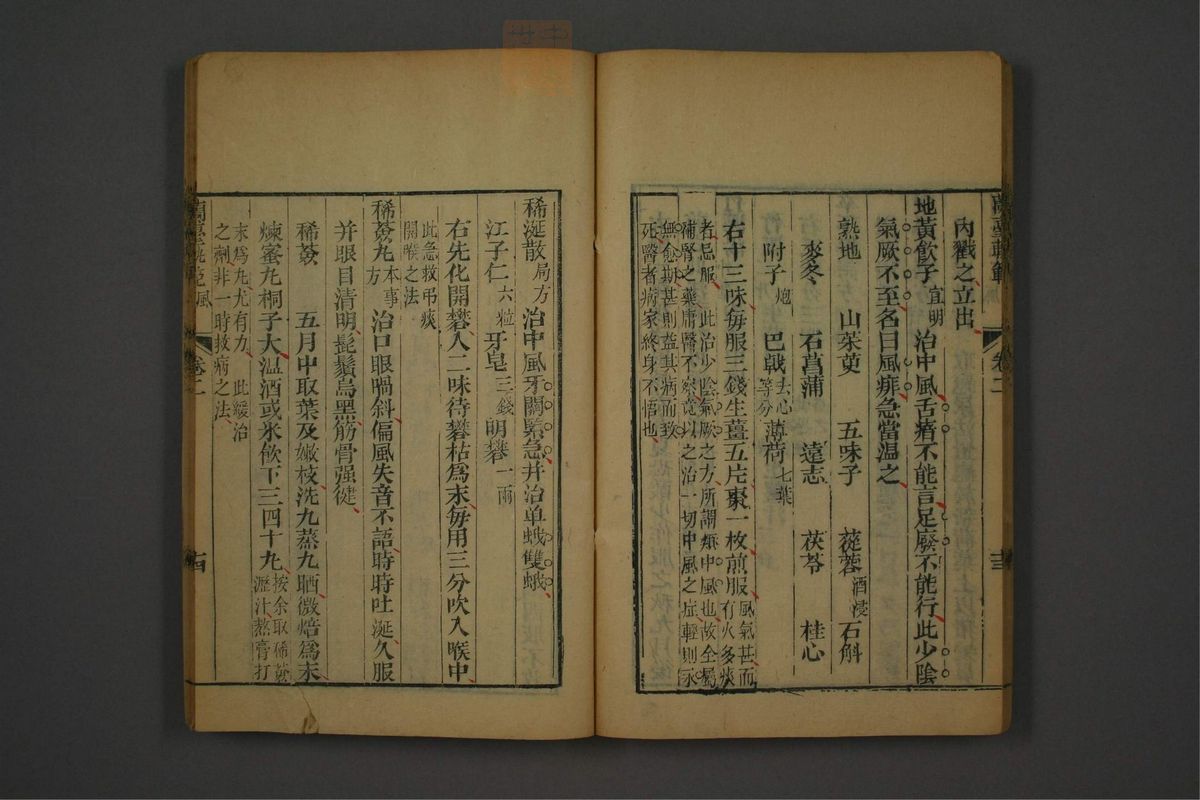 內戳之立出
地黃飲子宜明 治中風舌瘖不能言足廢不能行此少陰
氣厥不至名曰風痱急當温之
熟地 山茱萸 五味子 蓯蓉酒浸 石斛
麥冬 石菖蒲 遠志 茯苓 桂心
附子炮 巴戟去心等分 薄荷七葉
右十三味每服三錢生薑五片棗一枚煎服風氣甚而有火多痰
者忌服 此治少陰氣厥之方所謂類中風也故全屬
補腎之藥庸醫不察竟以之治一切中風之症輕則永
無愈期甚則益其病而致
死醫者病家終身不悟也
卷二
稀涎散局方 治中風牙關緊急并治单蛾雙蛾
江子仁六粒 牙皂三錢 明礬一兩
右先化開礬入二味待礬枯爲末每用三分吹入喉中
此急救弔痰
開喉之法
稀薟丸本事方 治口眼喎斜偏風失音不語時時吐涎久服
并眼目清明髭鬚烏黑筋骨强健
稀薟 五月中取葉及嫩枝洗九蒸九晒微焙爲末
煉蜜丸桐子大温酒或米飲下三四十丸按余取稀薟瀝汁熬膏打
末爲丸尤有力 此緩治
之劑非一時救病之法
卷二